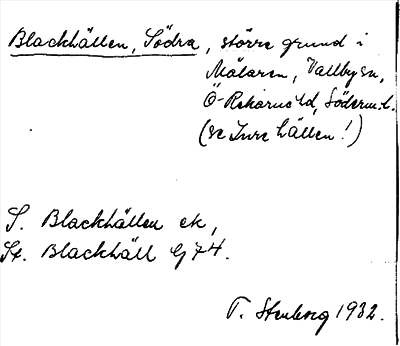 Blackhällen, Södra, större grund i
Mälaren, Vallby sn,
Ö-Rekarne hd, Söderm.l.
(se Inre hällen!)
S. Blackhällen ek,
St. Blackhäll Gj 74.
T. Stenberg 1932.